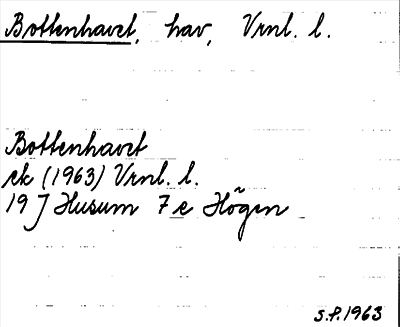 Bottenhavet, hav, Vrnl. l.
Bottenhavet
ek (1963) Vrnl. l.
19 J Husum 7 e Högen
S.F. 1963